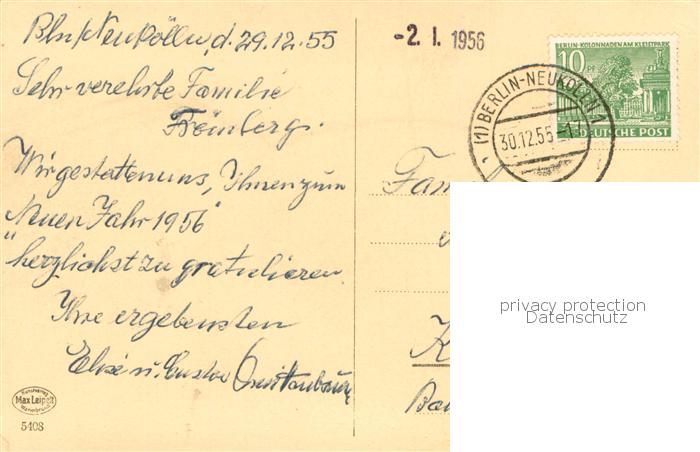 Bln/Neukölln, d. 29.12.55
Sehr verehrte Familie
Frömberg.
Wir gestatten uns, Ihnen zum
"Neuen Jahr 1956"
herzlichst zu gratulieren.
Ihre ergebensten
Else u. Gustav
Kunstverlag
Max Leipelt
Warmbrunn
5408
-2. I. 1956
BERLIN-KOLONNADEN AM KLEISTPARK
10 PF
DEUTSCHE POST
(1) BERLIN-NEUKÖLLN 1
30.12.55
Fam
K
Ba
privacy protection
Datenschutz